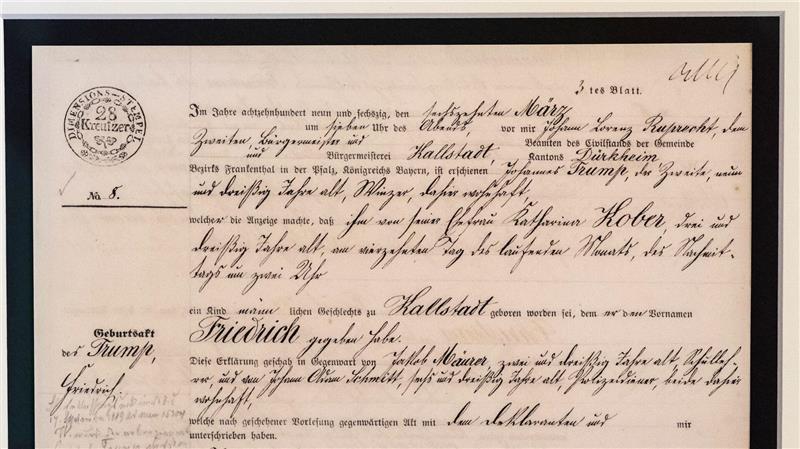 DIMENSIONS-STEMPEL
28
Kreuzer
3 tes Blatt.
Im Jahre achtzehnhundert neun und sechszig, den sechszehnten März
um sieben Uhr des Abends, vor mir Johann Lorenz Ruprecht, dem
Zweiten Bürgermeister und Beamten des Civilstands der Gemeinde
und Bürgermeisterei Kallstadt, Kantons Dürkheim
Bezirks Frankenthal in der Pfalz, Königreichs Bayern, ist erschienen Johannes Trump, der Zweite, neun
No 8.
und dreißig Jahre alt, Winzer, dahier wohnhaft,
welcher die Anzeige machte, daß ihm von seiner Ehefrau Katharina Kober, drei und
dreißig Jahre alt, am vierzehnten Tag des laufenden Monats, des Nachmit-
tags um zwei Uhr
ein Kind männ lichen Geschlechts zu Kallstadt geboren worden sei, dem er den Vornamen
Friedrich gegeben habe.
Geburtsakt
des Trump,
Friedrich.
Diese Erklärung geschah in Gegenwart von Jakob Maurer, zwei und dreißig Jahre alt, Schulleh-
rer, und von Johann Adam Schmitt, sechs und dreißig Jahre alt, Polizeidiener, beide dahier
wohnhaft,
welche nach geschehener Vorlesung gegenwärtigen Akt mit dem Deklaranten und mir
unterschrieben haben.